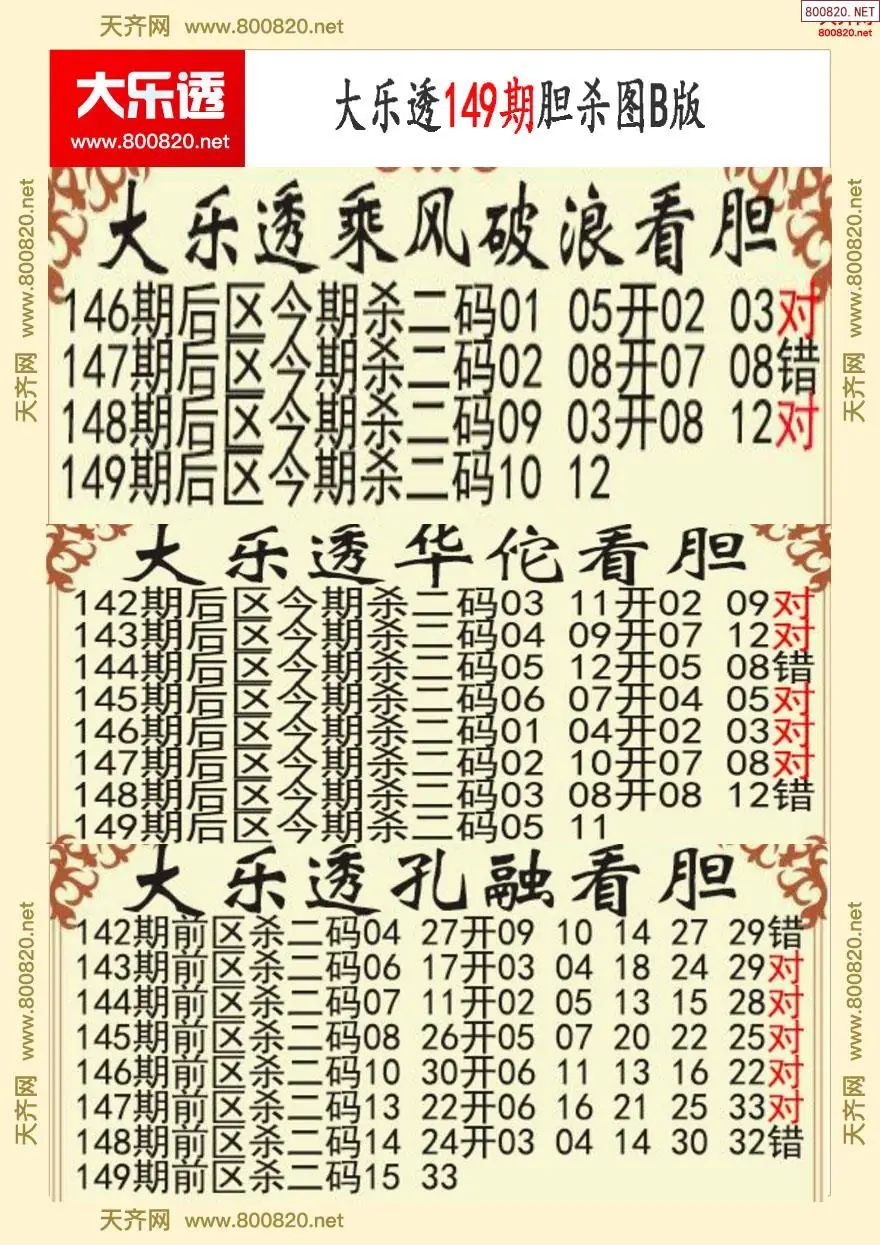 天齐网 www.800820.net
800820.NET
800820.net
大乐透
www.800820.net
大乐透149期胆杀图B版
天齐网 www.800820.net
天齐网 www.800820.net
大乐透乘风破浪看胆
146期后区今期杀二码01 05开02 03对
147期后区今期杀二码02 08开07 08错
148期后区今期杀二码09 03开08 12对
149期后区今期杀二码10 12
大乐透华佗看胆
142期后区今期杀二码03 11开02 09对
143期后区今期杀二码04 09开07 12对
144期后区今期杀二码05 12开05 08错
145期后区今期杀二码06 07开04 05对
146期后区今期杀二码01 04开02 03对
147期后区今期杀二码02 10开07 08对
148期后区今期杀二码03 08开08 12错
149期后区今期杀二码05 11
大乐透孔融看胆
142期前区杀二码04 27开09 10 14 27 29错
143期前区杀二码06 17开03 04 18 24 29对
144期前区杀二码07 11开02 05 13 15 28对
145期前区杀二码08 26开05 07 20 22 25对
146期前区杀二码10 30开06 11 13 16 22对
147期前区杀二码13 22开06 16 21 25 33对
148期前区杀二码14 24开03 04 14 30 32错
149期前区杀二码15 33
天齐网 www.800820.net
天齐网 www.800820.net
天齐网 www.800820.net